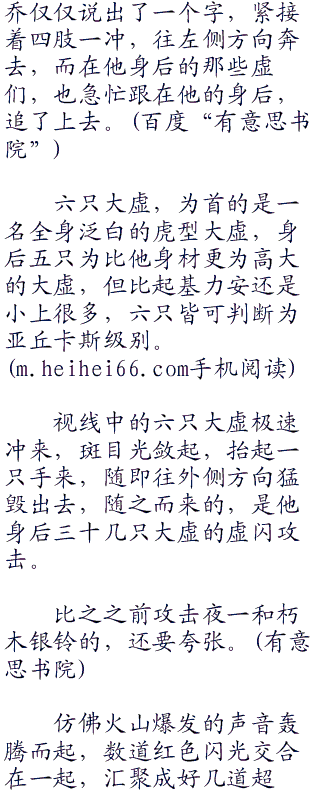 乔仅仅说出了一个字，紧接
着四肢一冲，往左侧方向奔
去，而在他身后的那些虚
们，也急忙跟在他的身后，
追了上去。(百度“有意思书
院”)
六只大虚，为首的是一
名全身泛白的虎型大虚，身
后五只为比他身材更为高大
的大虚，但比起基力安还是
小上很多，六只皆可判断为
亚丘卡斯级别。
(m.heihei66.com手机阅读)
视线中的六只大虚极速
冲来，斑目光敛起，抬起一
只手来，随即往外侧方向猛
毁出去，随之而来的，是他
身后三十几只大虚的虚闪攻
击。
比之之前攻击夜一和朽
木银铃的，还要夸张。(有意
思书院)
仿佛火山爆发的声音轰
腾而起，数道红色闪光交合
在一起，汇聚成好几道超